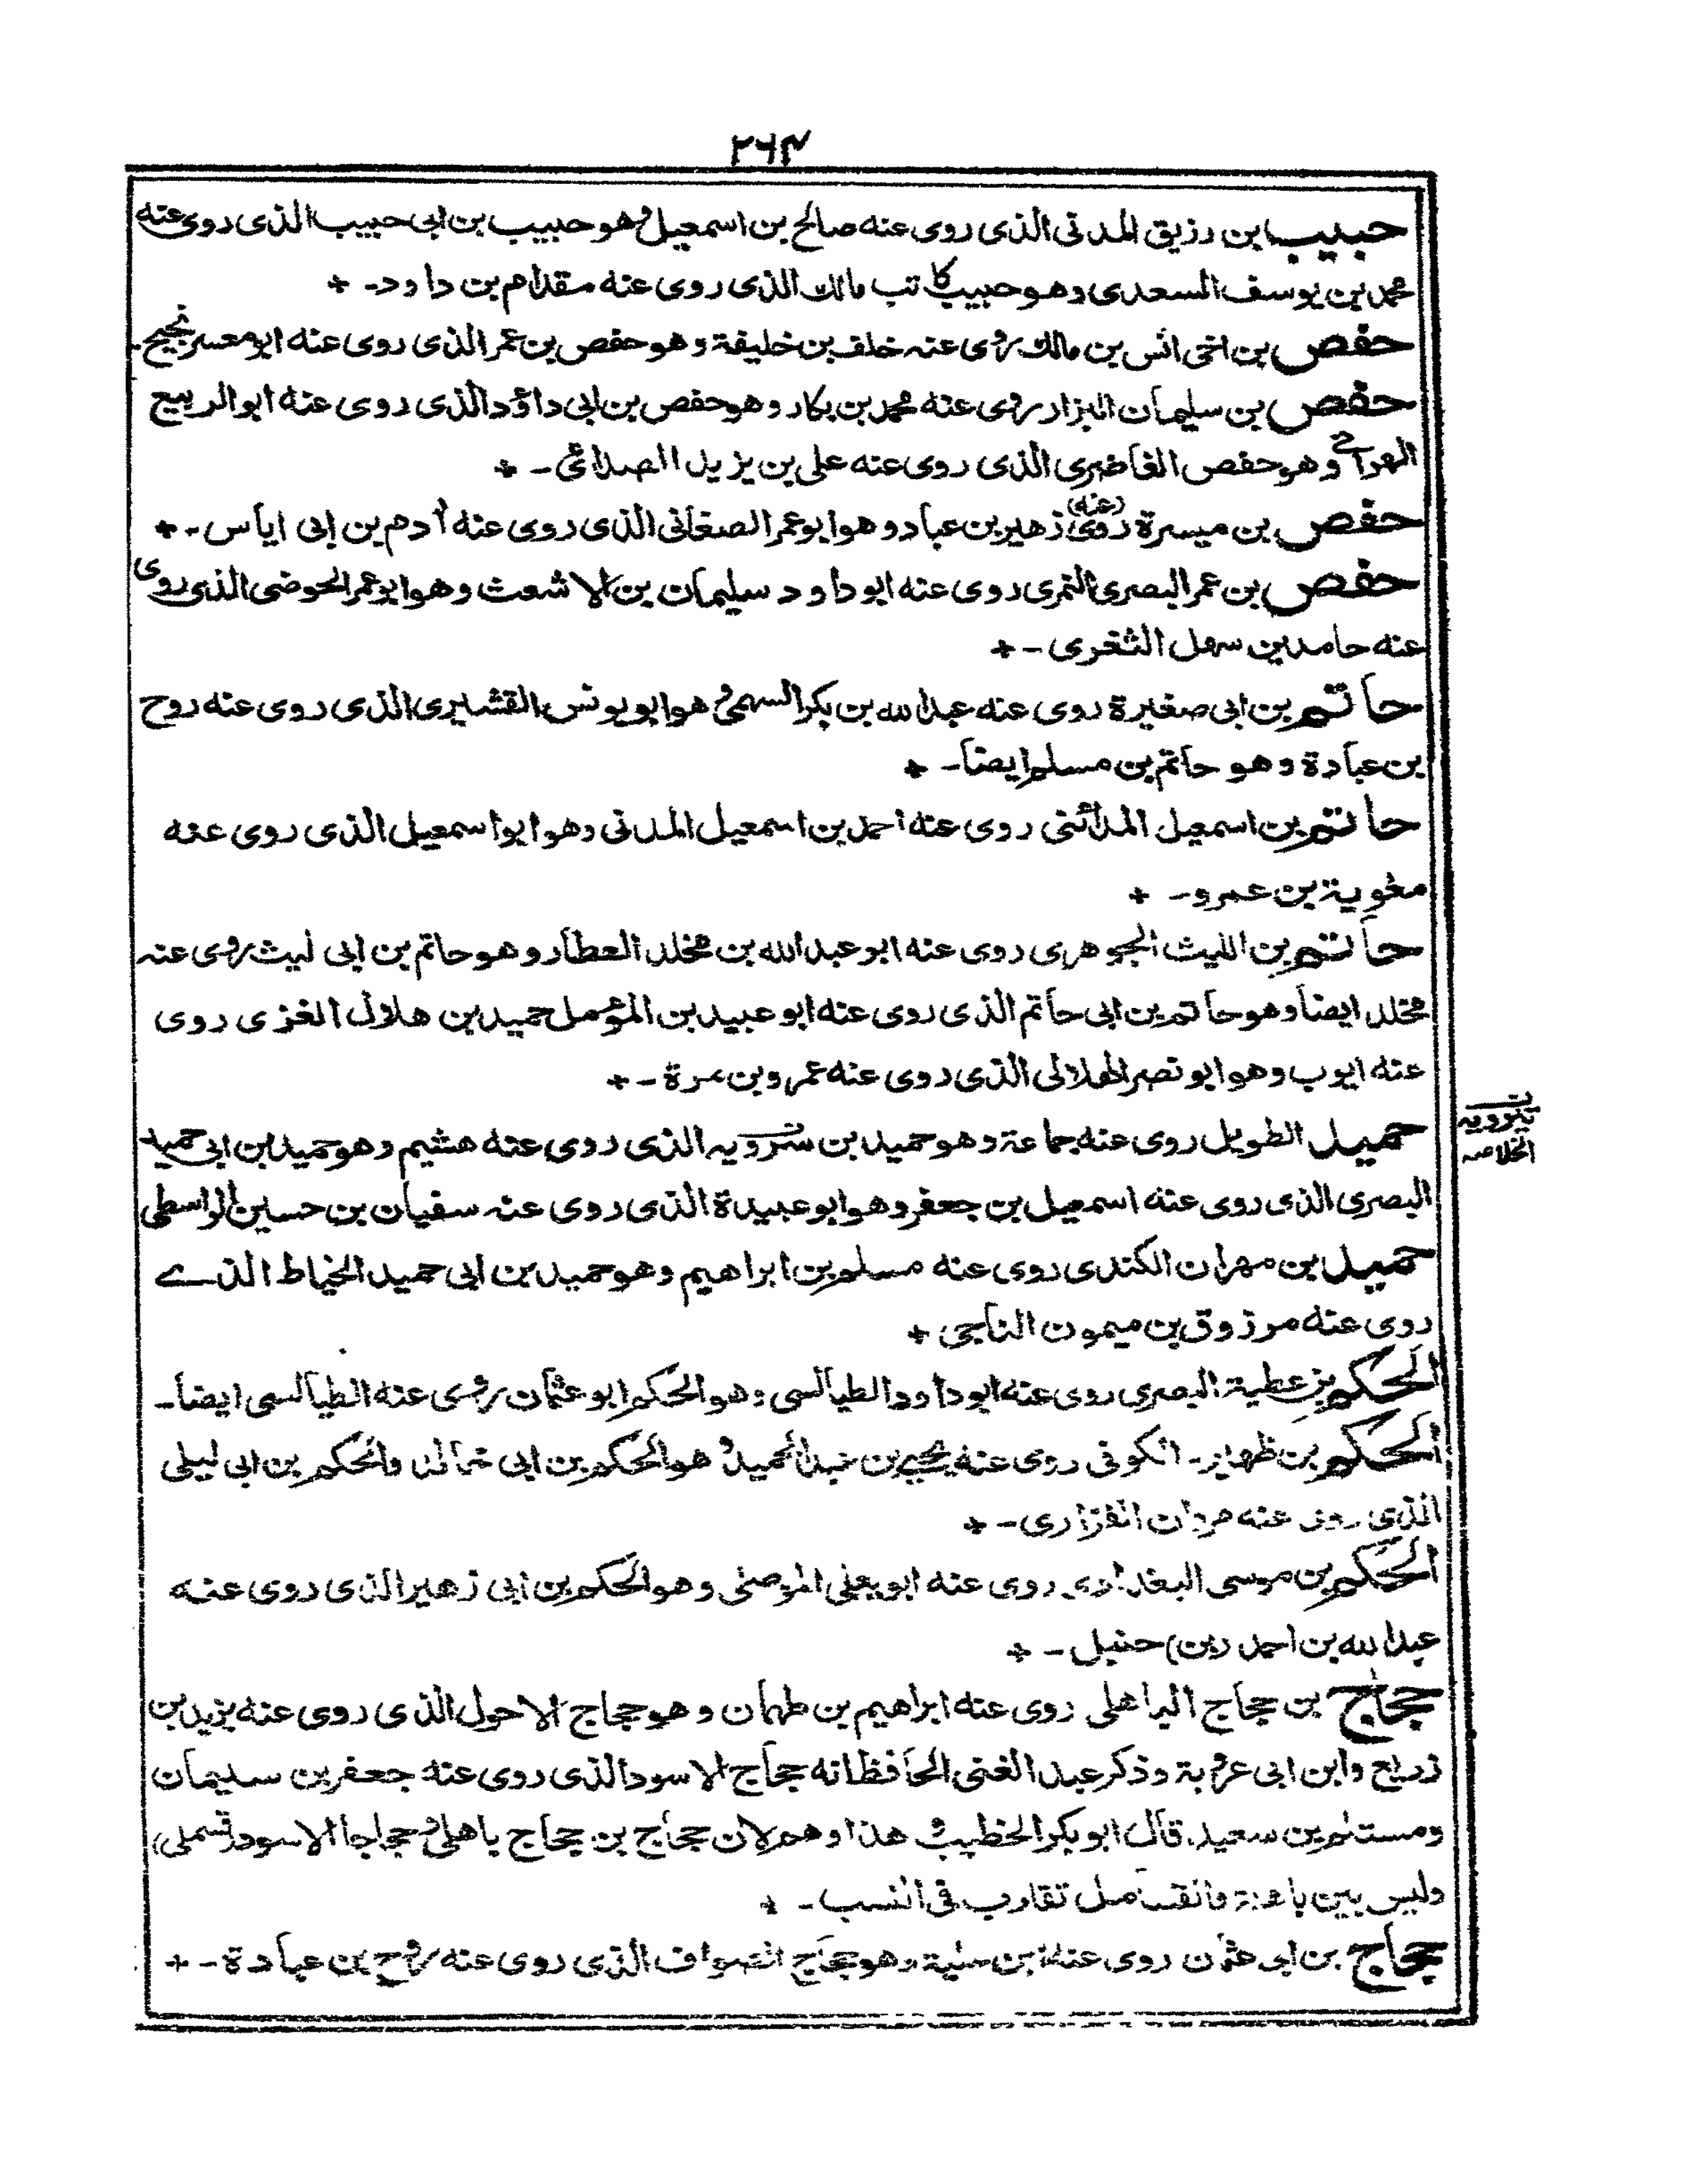 ٢٦٤
حبيب بن رزيق المدني الذي روى عنه صالح بن اسمعيل وهو حبيب بن ابي حبيب الذي روى عنه
محمد بن يوسف السعدي وهو حبيب كاتب مالك الذي روى عنه مقدام بن داود-+
حفص بن اخى انس بن مالك روى عنه خلف بن خليفة وهو حفص بن عمر الذي روى عنه ابو معسر نجيح-
حفص بن سليمان البزار روى عنه محمد بن بكار وهو حفص بن ابي داؤد الذي روى عنه ابو الربيع
الهرا وهو حفص الغاضري الذي روى عنه على بن يزيد الصدائي-+
حفص بن ميسرة روى (عنه) زهير بن عباد وهو ابو عمر الصغانى الذي روى عنه آدم بن ابى اياس-+
حفص بن عمر البصري النمري روى عنه ابو داود سليمان بن الاشعث وهو ابو عمر الحوضى الذي روى
عنه حامد بن سهل الثغرى-+
حاتم بن ابى صغيرة روى عنه عبد الله بن بكر السهمى وهو ابو يونس القشيرى الذي روى عنه روح
بن عبادة وهو حاتم بن مسلم ايضا-+
حاتم بن اسمعيل المدائنى روى عنه احمد بن اسمعيل المدنى وهو ابو اسمعيل الذي روى عنه
معوية بن عمرو-+
حاتم بن الليث الجوهرى روى عنه ابو عبد الله بن مخلد العطار وهو حاتم بن ابى ليث روى عنه
مخلد ايضا وهو حاتم بن ابى حاتم الذي روى عنه ابو عبيد بن المؤمل حميد بن هلال الغزى روى
عنه ايوب وهو ابو نصر الهلالى الذي روى عنه عمرو بن مرة-+
حميد الطويل روى عنه جماعة وهو حميد بن تيرويه الذي روى عنه هشيم وهو حميد بن ابى حميد
تيرويه
الخلاصه
البصرى الذي روى عنه اسمعيل بن جعفر وهو ابو عبيدة الذي روى عنه سفيان بن حسين الواسطى
حميد بن مهران الكندى روى عنه مسلم بن ابراهيم وهو حميد بن ابى حميد الخياط الذے
روى عنه مرزوق بن ميمون الناجى +
الحكم بن عطية البصرى روى عنه ابو داود الطيالسى وهو الحكم ابو عثمان روى عنه الطيالسى ايضا-
الحكم بن ظهير- الكوفى روى عنه يحيى بن عبد الحميد وهو الحكم بن ابى خالد والحكم بن ابى ليلى
الذي روى عنه مروان الفزارى-+
الحكم بن موسى البغدادى روى عنه ابو يعلى الموصلى وهو الحكم بن ابى زهير الذي روى عنه
عبد الله بن احمد (بن) حنبل-+
حجاج بن حجاج الباهلى روى عنه ابراهيم بن طهمان وهو حجاج الاحول الذي روى عنه يزيد بن
زريع وابن ابى عروبة وذكر عبد الغنى الحافظ انه حجاج الاسود الذي روى عنه جعفر بن سليمان
ومستلم بن سعيد، قال ابو بكر الخطيب و هذا وهم لان حجاج بن حجاج باهلى وحجاجا الاسود (قسملى)
وليس بين باهلة والقسامل تقارب فى النسب-+
حجاج بن ابى عثمان روى عنه ابن علية وهو حجاج الصواف الذي روى عنه روح بن عبادة-+